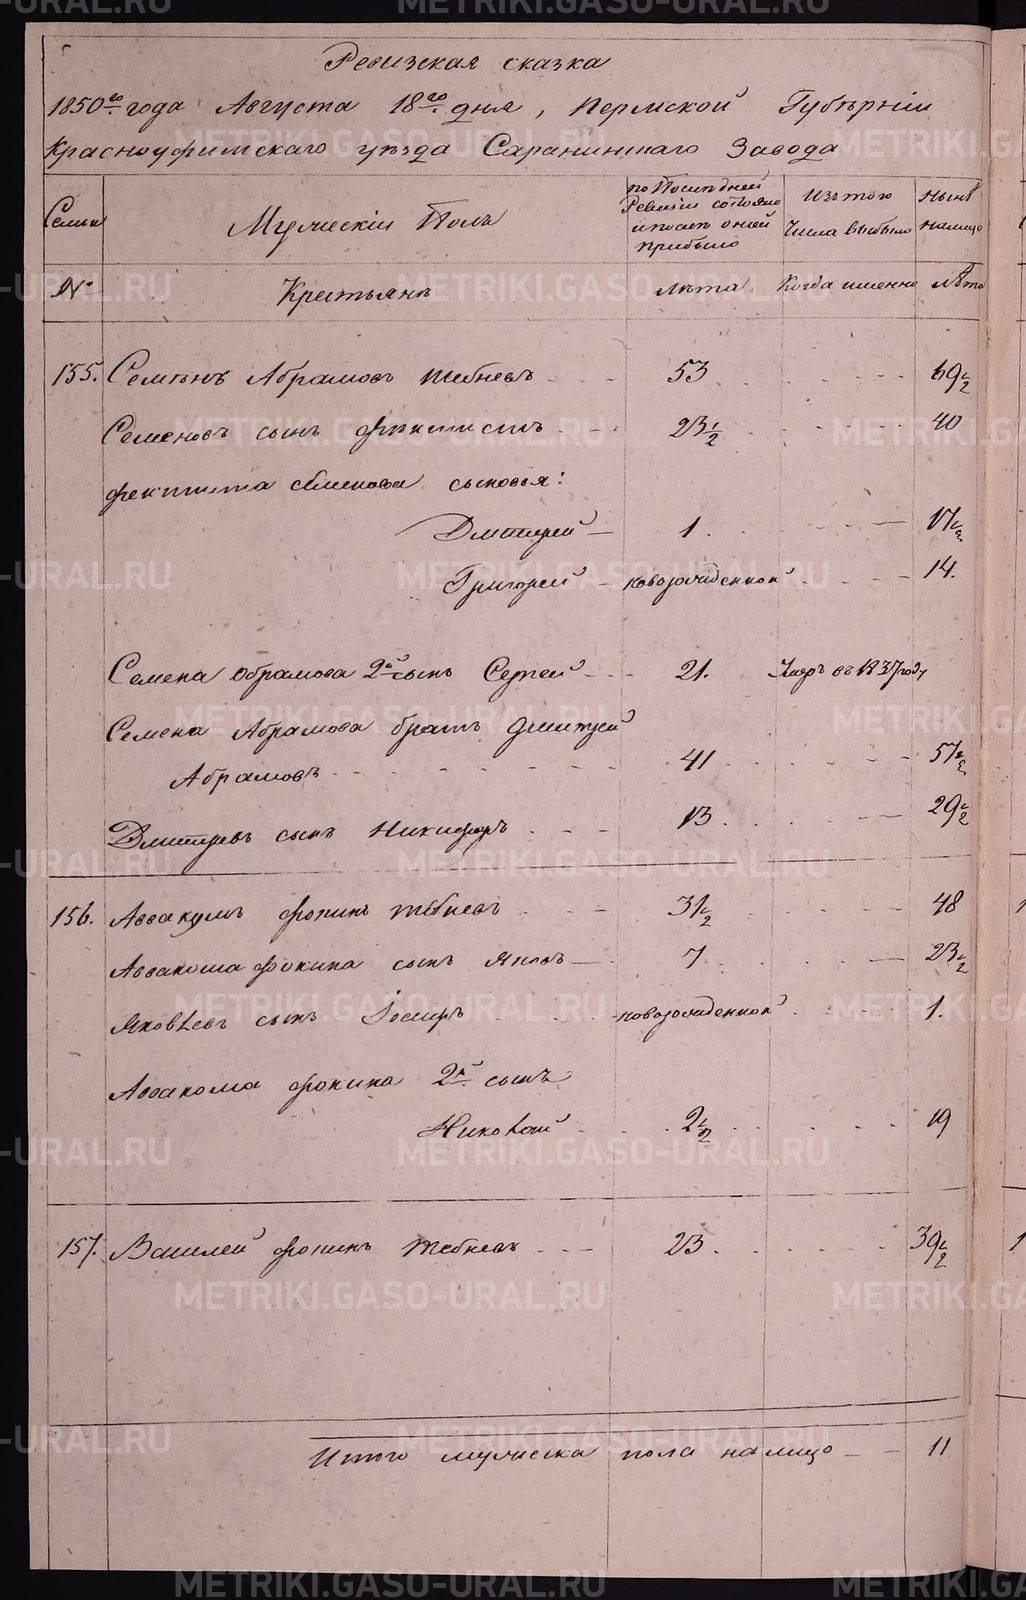 Ревизская сказка
1850го года Августа 18го дня, Пермской Губѣрніи
Красноуфимскаго уѣзда Саранинскаго Завода
Семьи
Мужескій Полъ
по Послѣдней Ревизіи состояло и послѣ оней прибыло
Изъ того Числа выбыло
Нынѣ налицо
№
Крестьянъ
лѣта
Когда именно
лѣта
155. Семенъ Абрамовъ 53 69 1/2
Семеновъ сынъ 23 1/2 40
Семенова сыновья:
Дмитрей 1. 17 1/2
Григорей новорожденной 14.
Семена Обрамова 2й сынъ Сергей 21. Умеръ въ 1837 году
Семена Абрамова братъ Дмитрей
Абрамовъ 41 57 1/2
Дмитрѣвъ сынъ Никифоръ 13. 29 1/2
156. Аввакумъ Фокинъ 31 1/2 48
Аввакома Фокина сынъ Яковъ 7 23 1/2
Яковлевъ сынъ новорожденной 1.
Аввакома Фокина 2й сынъ
Николай 2 1/2 19
157. Василей Фокинъ 23. 39 1/2
Итого мужеска пола налицо 11
METRIKI.GASO-URAL.RU